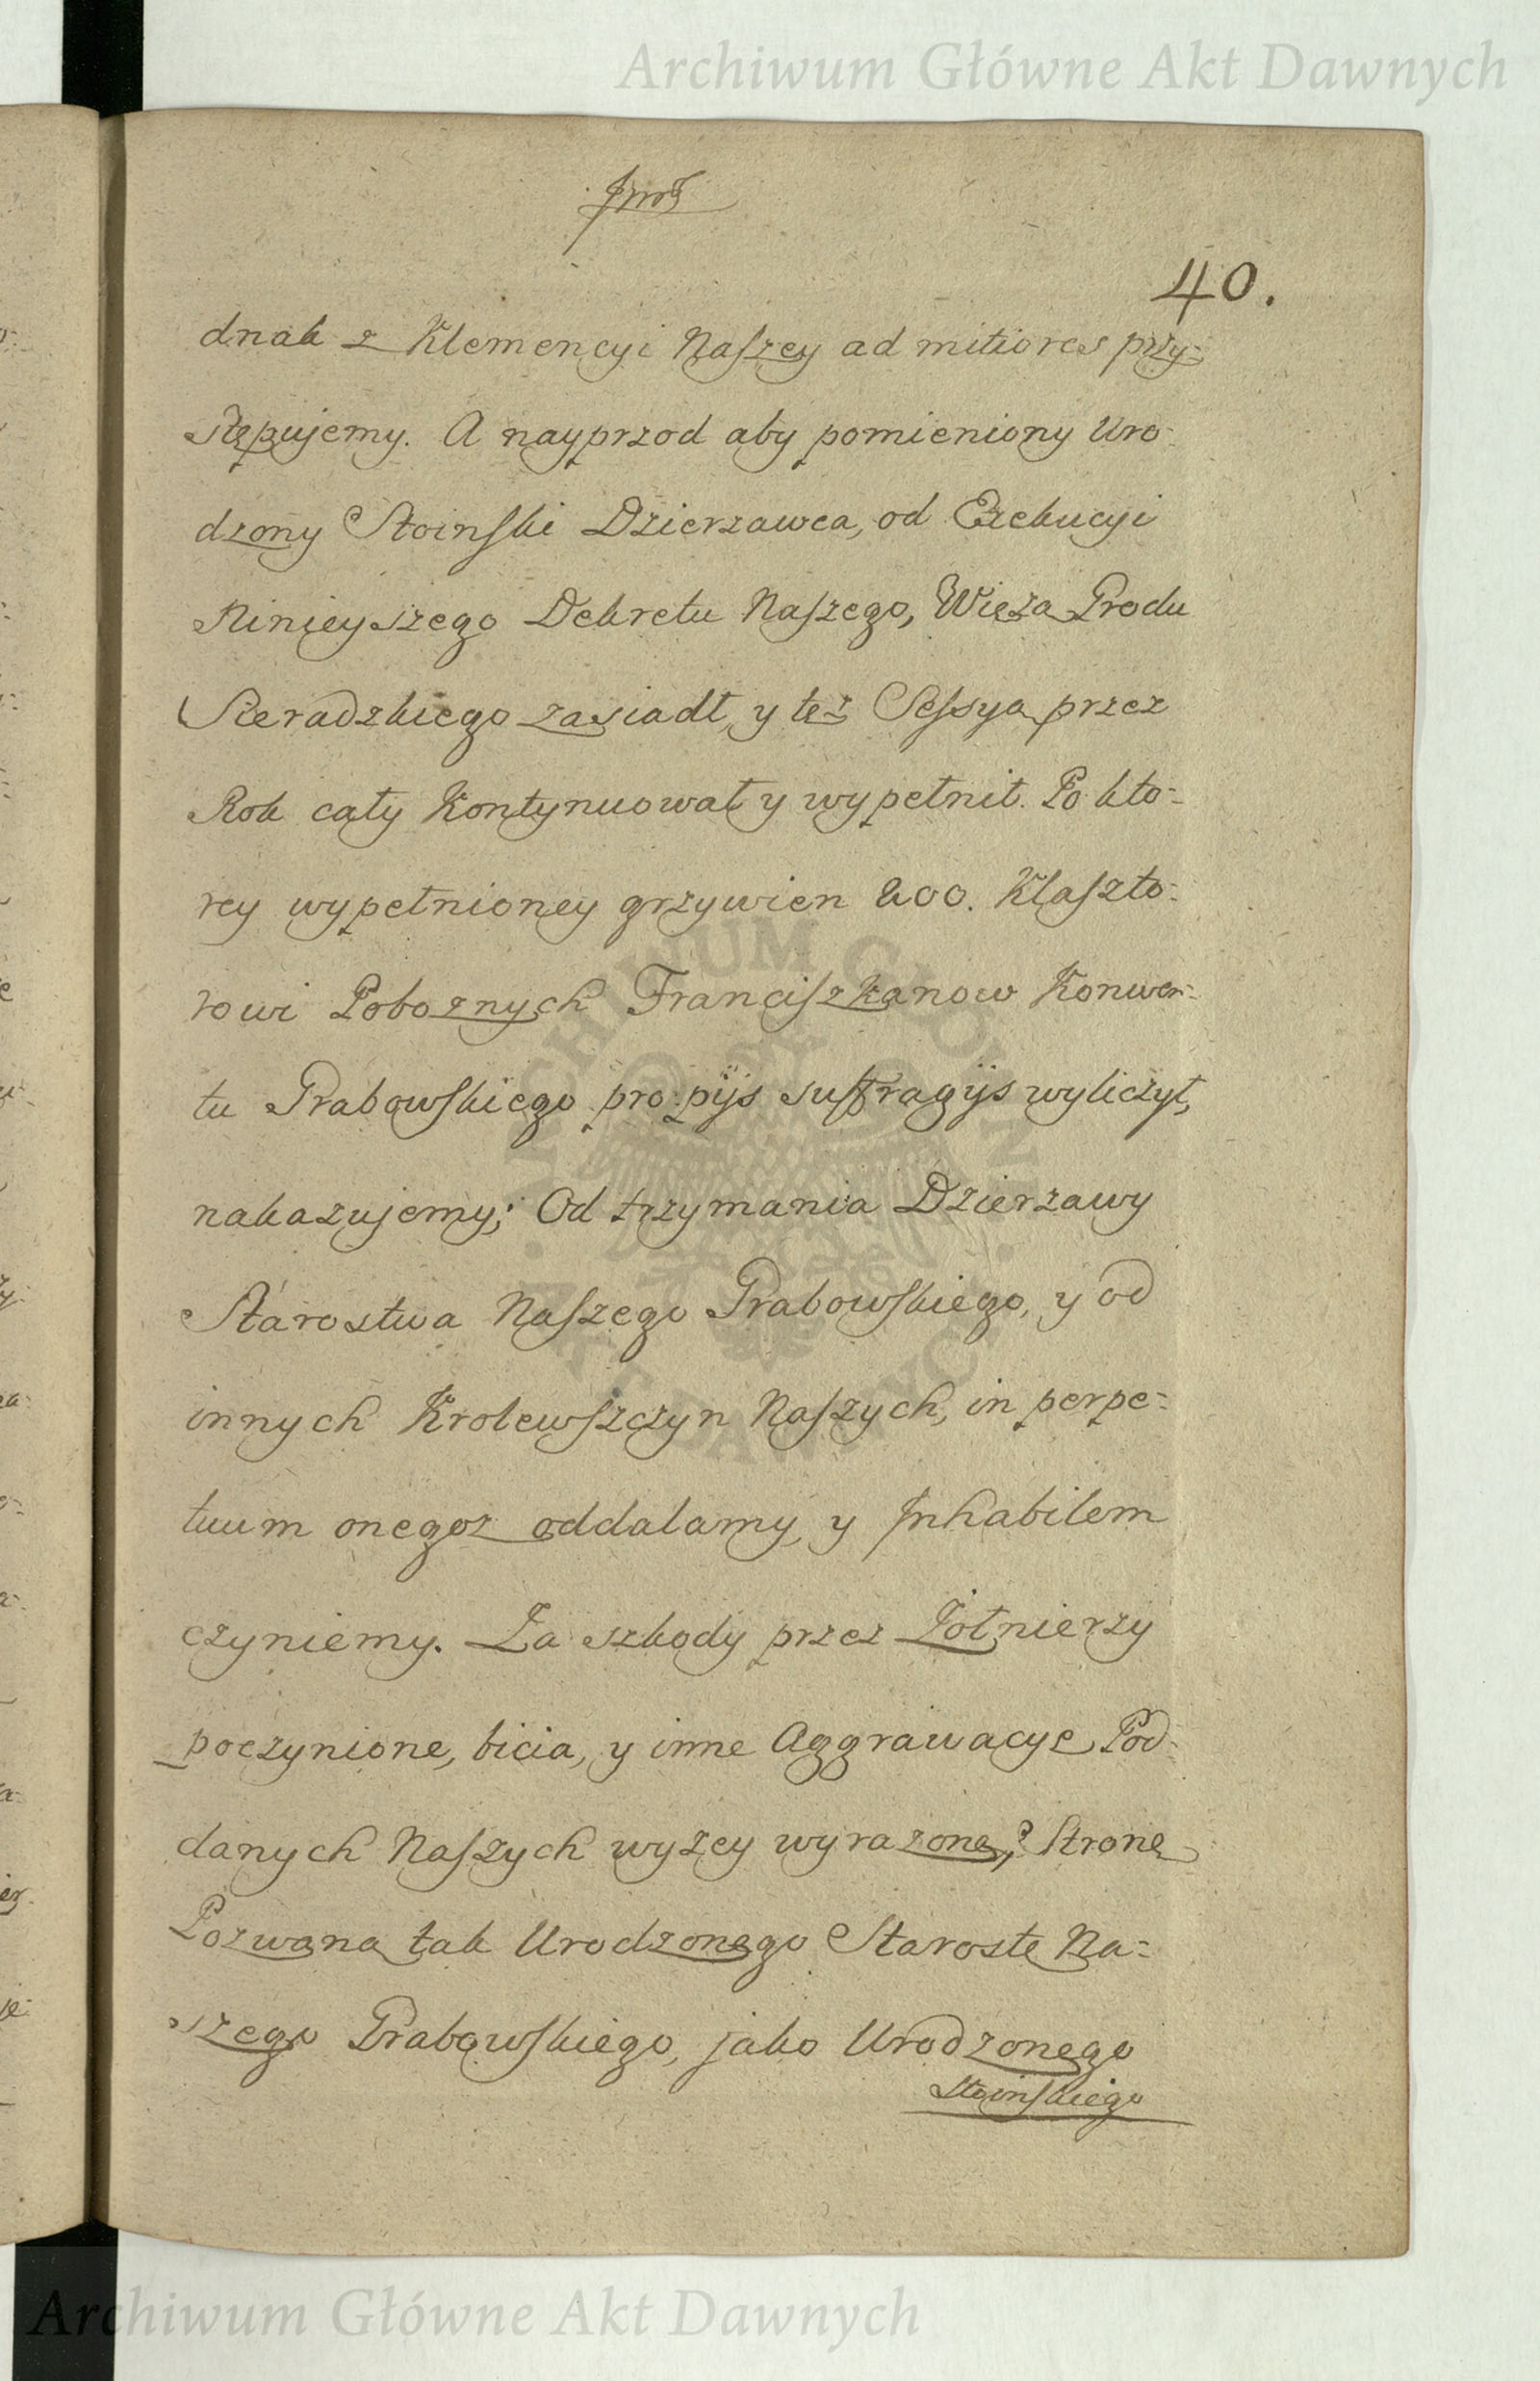 Archiwum Główne Akt Dawnych
40.
dnak z Klemencyi Naszey ad mitiores przy-
stępujemy. A nayprzod aby pomieniony Uro-
dzony Stoinski Dzierzawca, od Exekucyi
Ninieyszego Dekretu Naszego, Wieżą Grodu
Sieradzkiego zasiadł, y tęż Sessyą przez
Rok cały Kontynuował y wypełnił. Po kto-
rey wypełnioney grzywien 200. Klaszto-
rowi Pobożnych Franciszkanow Konwen-
tu Grabowskiego pro pijs suffragijs wyliczył,
nakazujemy; Od trzymania Dzierzawy
Starostwa Naszego Grabowskiego, y od
innych Krolewszczyn Naszych, in perpe-
tuum onegoż oddalamy, y Inhabilem
czyniemy. Za szkody przez Żołnierzy
poczynione, bicia, y inne Aggrawacye Pod-
danych Naszych wyżey wyrażone, Stronę
Pozwaną tak Urodzonego Starostę Na-
szego Grabowskiego, jako Urodzonego
Stoinskiego
ARCHIWUM GŁÓWNE
AKT DAWNYCH
Archiwum Główne Akt Dawnych